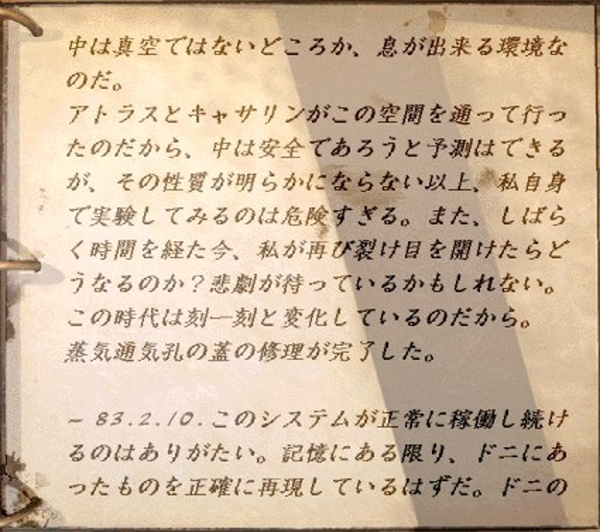 中は真空ではないどころか、息が出来る環境な
のだ。
アトラスとキャサリンがこの空間を通って行っ
たのだから、中は安全であろうと予測はできる
が、その性質が明らかにならない以上、私自身
で実験してみるのは危険すぎる。また、しばら
く時間を経た今、私が再び裂け目を開けたらど
うなるのか？悲劇が待っているかもしれない。
この時代は刻一刻と変化しているのだから。
蒸気通気孔の蓋の修理が完了した。
~ 83.2.10.このシステムが正常に稼働し続け
るのはありがたい。記憶にある限り、ドニにあ
ったものを正確に再現しているはずだ。ドニの